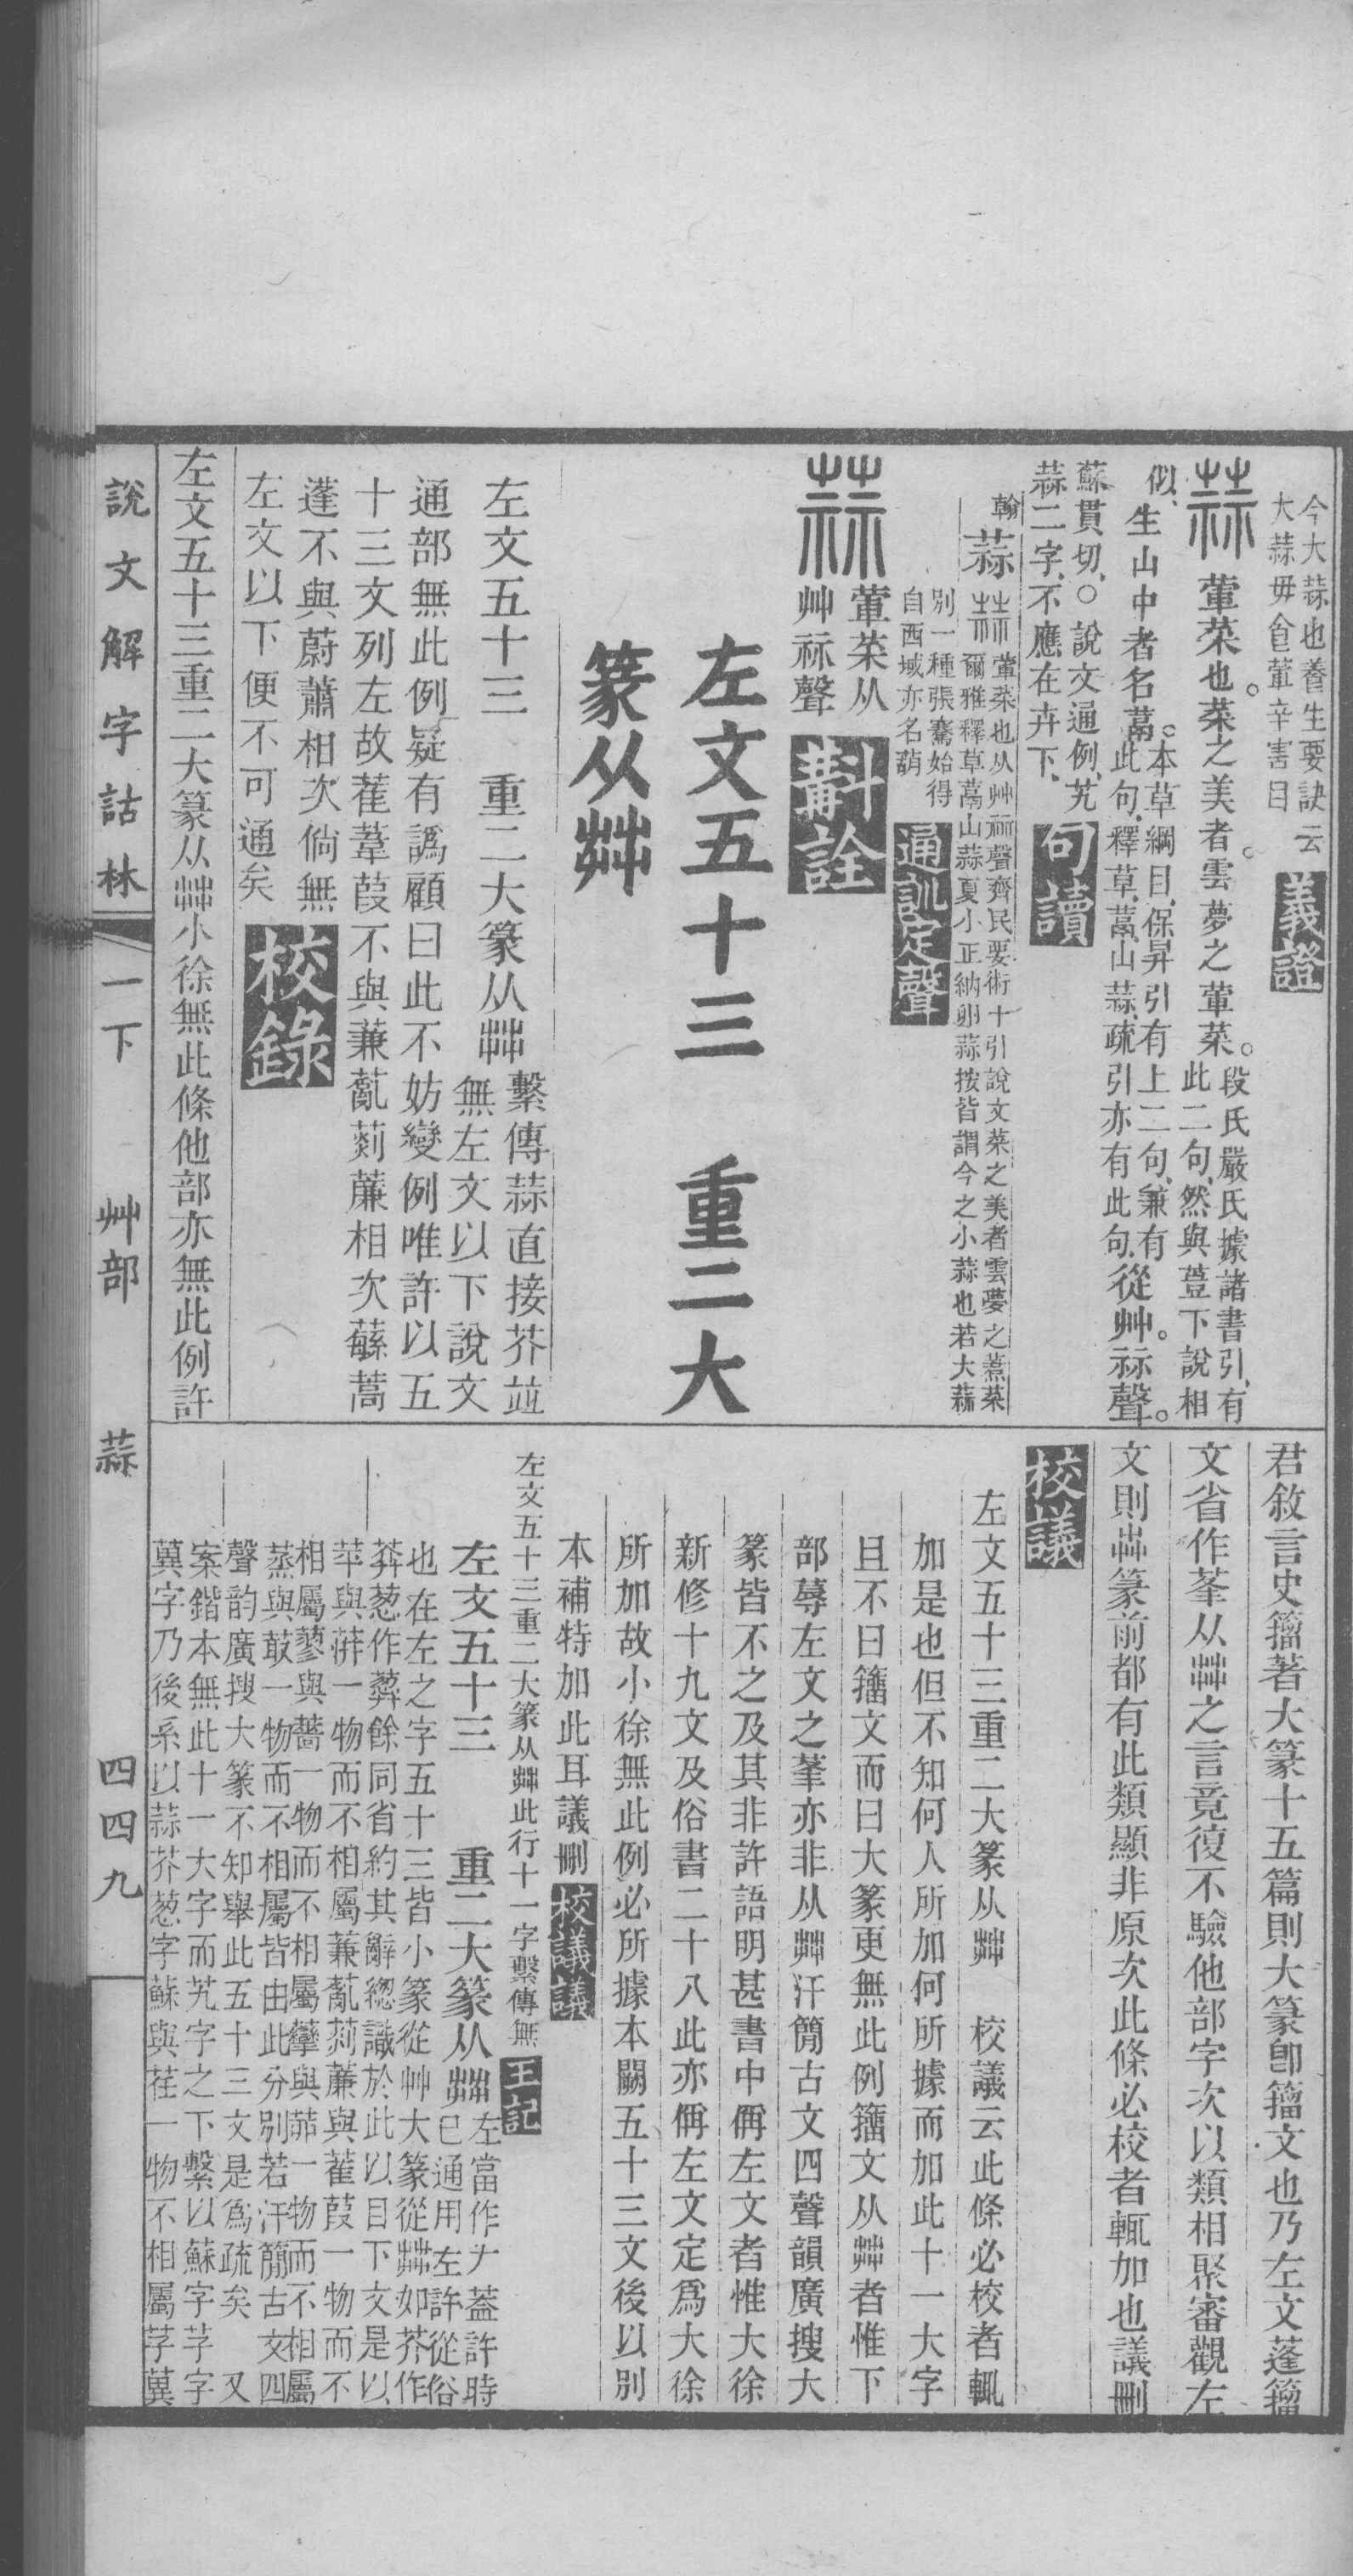 今大蒜也養生要訣云
大蒜毋食葷辛害目
義證
蒜
葷菜也。菜之美者。雲夢之葷菜。
段氏嚴氏據諸書引、有
此二句、然與荁下說相
似、生山中者名蒚。
本草綱目、保昇引有上二句、兼有
此句、釋草、蒚、山蒜、疏引亦有此句、
從艸。祘聲。
蘇貫切、○說文通例、艽
蒜二字、不應在卉下、
句讀
翰
蒜
葷菜也从艸祘聲齊民要術十引說文菜之美者雲夢之葷菜
爾雅釋草蒚山蒜夏小正納卵蒜按皆謂今之小蒜也若大蒜
別一種張騫始得
自西域亦名葫
通訓定聲
蒜
葷菜从
艸祘聲
斠詮
左文五十三　重二大
篆从茻
左文五十三　重二大篆从茻
繫傳蒜直接芥並
無左文以下說文
通部無此例疑有譌顧曰此不妨變例唯許以五
十三文列左故萑葦葭不與蒹薍菼薕相次蘇蒿
蓬不與蔚蕭相次倘無
左文以下便不可通矣
校錄
左文五十三重二大篆从茻小徐無此條他部亦無此例許
說文解字詁林
一下
艸部
蒜
四四九
君敘言史籀著大篆十五篇則大篆卽籀文也乃左文蓬籀
文省作莑从茻之言竟復不驗他部字次以類相聚審觀左
文則茻篆前都有此類顯非原次此條必校者輒加也議刪
校議
左文五十三重二大篆从茻　校議云此條必校者輒
加是也但不知何人所加何所據而加此十一大字
且不曰籀文而曰大篆更無此例籀文从茻者惟下
部蓐左文之莑亦非从茻汗簡古文四聲韻廣搜大
篆皆不之及其非許語明甚書中偁左文者惟大徐
新修十九文及俗書二十八此亦偁左文定爲大徐
所加故小徐無此例必所據本闕五十三文後以別
本補特加此耳議刪
校議議
左文五十三重二大篆从茻此行十一字繫傳無
王記
左文五十三　重二大篆从茻
左當作𠂇蓋許時
已通用左許從俗
也在左之字五十三皆小篆從艸大篆從茻如芥作
葱作餘同省約其辭總識於此以目下文是以
苹與蓱一物而不相屬蒹薍菼薕與萑葭一物而不
相屬蓼與薔一物而不相屬虉與茆一物而不相屬
蒸與菆一物而不相屬皆由此分別若汗簡古文四
聲韵廣搜大篆不知舉此五十三文是爲疏矣　又
案鍇本無此十一大字而艽字之下繫以蘇字芓字
蓂字乃後系以蒜芥葱字蘇與荏一物不相屬芓蓂